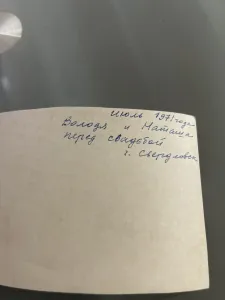 июль 1971 года
Володя и Наташа
перед свадьбой
г. Свердловск